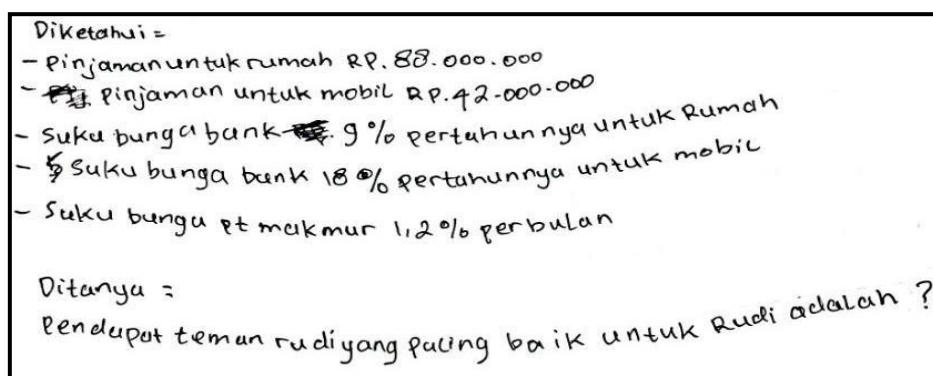 Diketahui =
- Pinjaman untuk rumah RP. 88.000.000
- Pinjaman untuk mobil RP. 42.000.000
- Suku bunga bank 9 % pertahunnya untuk Rumah
- Suku bunga bank 18 % pertahunnya untuk mobil
- Suku bunga pt makmur 1,2 % perbulan
Ditanya =
Pendapat teman rudi yang paling baik untuk Rudi adalah ?